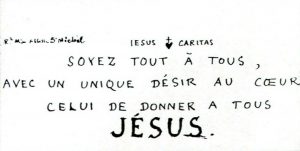 IESUS CARITAS
SOYEZ TOUT À TOUS,
AVEC UN UNIQUE DÉSIR AU CŒUR
CELUI DE DONNER A TOUS
JÉSUS.